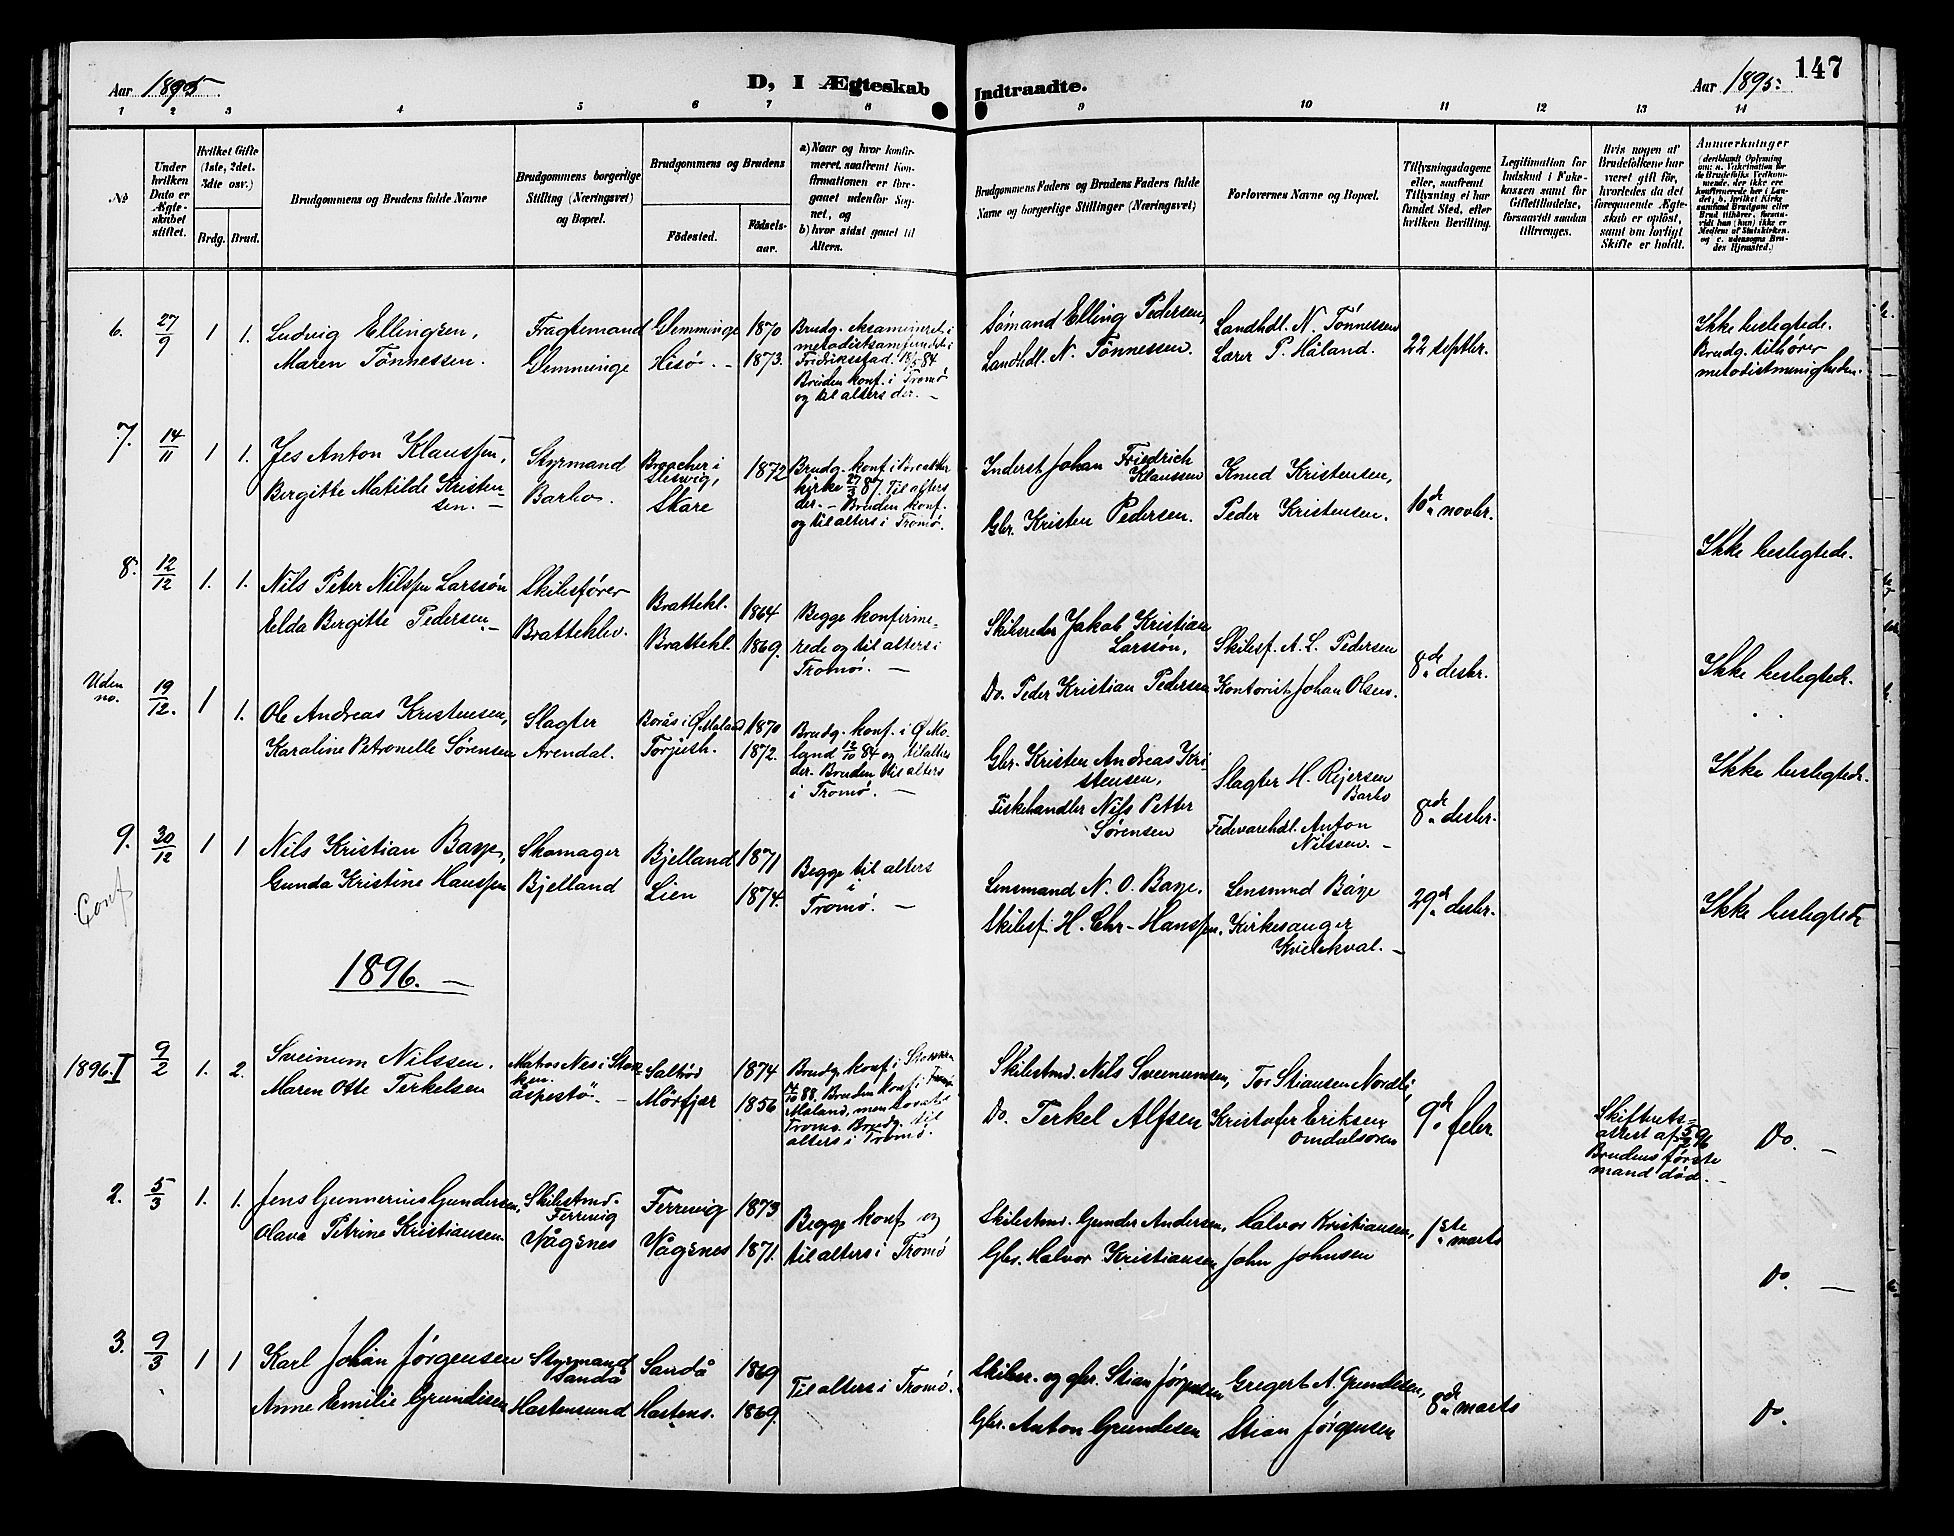 Aar 1895.
D, I Ægteskab
Indtraadte.
Aar 1895.
147
1 2 3 4 5 6 7 8 9 10 11 12 13 14
No
Under hvilken Dato er Ægteskabet stiftet.
Hvilket Gifte (1ste, 2det, 3die osv.)
Brdg. Brud.
Brudgommens og Brudens fulde Navne
Brudgommens borgerlige Stilling (Næringsvei) og Bopæl.
Brudgommens og Brudens
Fødested.
Fødselsaar.
a) Naar og hvor konfirmeret, saafremt Konfirmationen er foregaaet udenfor Sognet, og
b) hvor sidst gaaet til Alters.
Brudgommens Faders og Brudens Faders fulde Navne og borgerlige Stillinger (Næringsvei)
Forlovernes Navne og Bopæl.
Tillysningsdagene eller, saafremt Tillysning ei har fundet Sted, efter hvilken Bevilling.
Legitimation for Indskud i Enkekassen samt for Giftetilladelse, forsaavidt saadan tiltrænges.
Hvis nogen af Brudefolkene har været gift før, hvorledes da det foregaaende Ægteskab er opløst, samt om lovligt Skifte er holdt.
Anmerkninger
6. 27/9 1 1. Ludvig Ellingsen, Fragtemand Glemminge 1870
Maren Tønnessen. Glemminge Hisø. 1873.
Brudg. eksamineret i metodistsamfundet i Fredriksstad. 18/5 84
Bruden konf. i Tromø og til alters der.
Sømand Elling Pedersen,
Landhdl. N. Tønnessen.
Landhdl. N. Tønnessen
Lærer P. Håland.
22 septbr.
Ikke beslegtede.
Brudg. tilhører
metodistmenigheden.
7. 14/11 1 1. Jes Anton Klaussen, Styrmand
Bergitte Matilde Kristensen. Barbo.
Slesvig, 1872
Skare
kirke 27/3 87. Til alters der. - Bruden konf. og til alters i Tromø.
Inderst Johan Friedrich Klaussen
Gbr. Kristen Pedersen.
Knud Kristensen,
Peder Kristensen.
10de novbr.
Ikke beslegtede.
8. 12/12 1. 1. Nils Peter Nilssen Larssøn Skibsfører Brattekl. 1864
Elda Bergitte Pedersen. Brattekley. Brattekl. 1869.
Begge konfirmerede og til alters i Tromø.
Skibsreder Jakob Kristian Larssøn,
Do. Peder Kristian Pedersen
Skibsf. A. L. Pedersen
Kontorist Johan Olsen.
8de desbr.
Ikke beslegtede.
Uden no. 19/12. 1 1. Ole Andreas Kristensen, Slagter Borås i Ø Moland 1870
Karaline Petronelle Sørensen Arendal. Torjush. 1872.
Brudg. konf. i Ø Moland 12/10 84 og til alters der. Bruden til alters i Tromø.
Gbr. Kristen Andreas Kristensen,
Fiskehandler Nils Petter Sørensen
Slagter H. Reiersen Barbo
Fedevarehdl. Anton Nilssen.
8de desbr.
Ikke beslegtede.
9. 30/12 1 1 Nils Kristian Baye, Skomager Bjelland 1871
Gunda Kristine Hanssen Bjelland Lien 1874.
Begge til alters i Tromø.
Lensmand N. O. Baye.
Skibsf. H. Chr. Hanssen.
Lensmand Baye
Kirkesanger
29de desbr.
Ikke beslegtede
Conf
1896.
1896. I 9/2 1. 2. Sveinum Nilssen. Matros Nes i Stokken. Saltrød 1874
Maren Otte Terkelsen Mørfjær 1856
Brudg. konf. i Stokken 88. Bruden konf. i Øiestad
Brudg. til alters i Tromø.
Skibstmd. Nils Sveinumsen,
Do. Terkel Alfsen
Tor Stiansen Nordli,
Kristofer Eriksen
9de febr.
Skifterets attest af 5/2 96
Brudens første mand død.
Do.
2. 5/3 1. 1. Jens Gunnerius Gundersen, Skibstmd. Færvig Færvig 1873
Olava Petrine Kristiansen Vågsnes Vågsnes 1871.
Begge konf og til alters i Tromø
Skibstmd. Gunder Andersen,
Gbr. Halvor Kristiansen
Halvor Kristiansen,
John Johnsen
1ste marts
Do.
3. 9/3 1 1 Karl Johan Jørgensen Styrmand Sandå Sandå 1869
Anne Emilie Grundesen Hastensund Hastens. 1869.
Til alters i Tromø.
Skibsr. og gbr. Stian Jørgensen
Gbr. Anton Grundesen
Gregert A. Grundesen,
Stian Jørgensen
8de marts
Do.